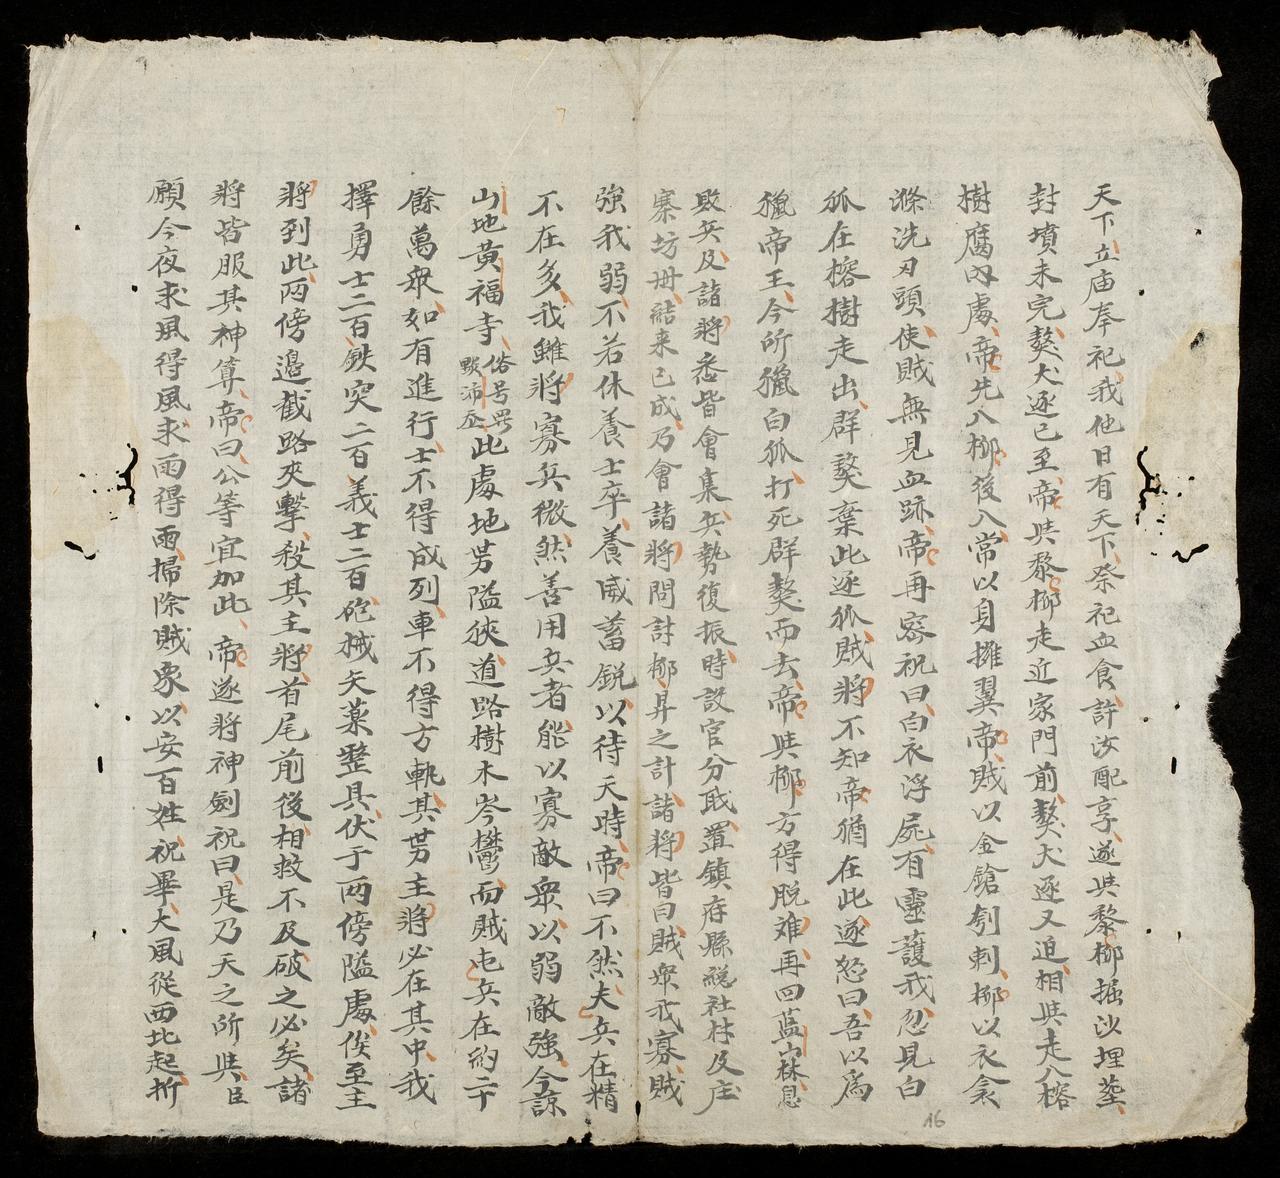 天下立庙奉祀我他日有天下祭祀血食許汝配享遂与黎柳掘沙埋塟
封墳未完獒犬逐已至帝与黎柳走近家門前獒犬逐又迫相与走入榕
樹腐内處帝先入柳後入常以身擁翼帝賊以金鎗刳刺柳以衣衾
滌洗刃頭使賊無見血跡帝再密祝曰白衣浮屍有靈護我忽見白
狐在榕樹走出群獒棄此逐狐賊將不知帝猶在此遂怒曰吾以為
獵帝王今所獵白狐打死群獒而去帝与柳方得脱难再回藍山林息
敗兵及諸將悉皆會集兵勢復振時設官分職置鎮府縣總社村及庄
寨坊册結来已成乃會諸將問討柳昇之計諸將皆曰賊衆我寡賊
強我弱不若休養士卒養威蓄鋭以待天時帝曰不然夫兵在精
不在多我雖將寡兵微然善用兵者能以寡敵衆以弱敵強今諒
山地黄福寺俗号 此處地势隘狹道路樹木岑鬱而賊屯兵在約二十
餘萬衆如有進行士不得成列車不得方軌其势主將必在其中我
擇勇士二百鉄突二百義士二百砲械矢薬整具伏于两傍隘處俟至主
將到此两傍邉截路夾擊殺其主將首尾前後相救不及破之必矣諸
將皆服其神算帝曰公等宜加此帝遂將神劍祝曰是乃天之所与臣
願今夜求風得風求雨得雨掃除賊衆以安百姓祝畢大風從西北起折
16